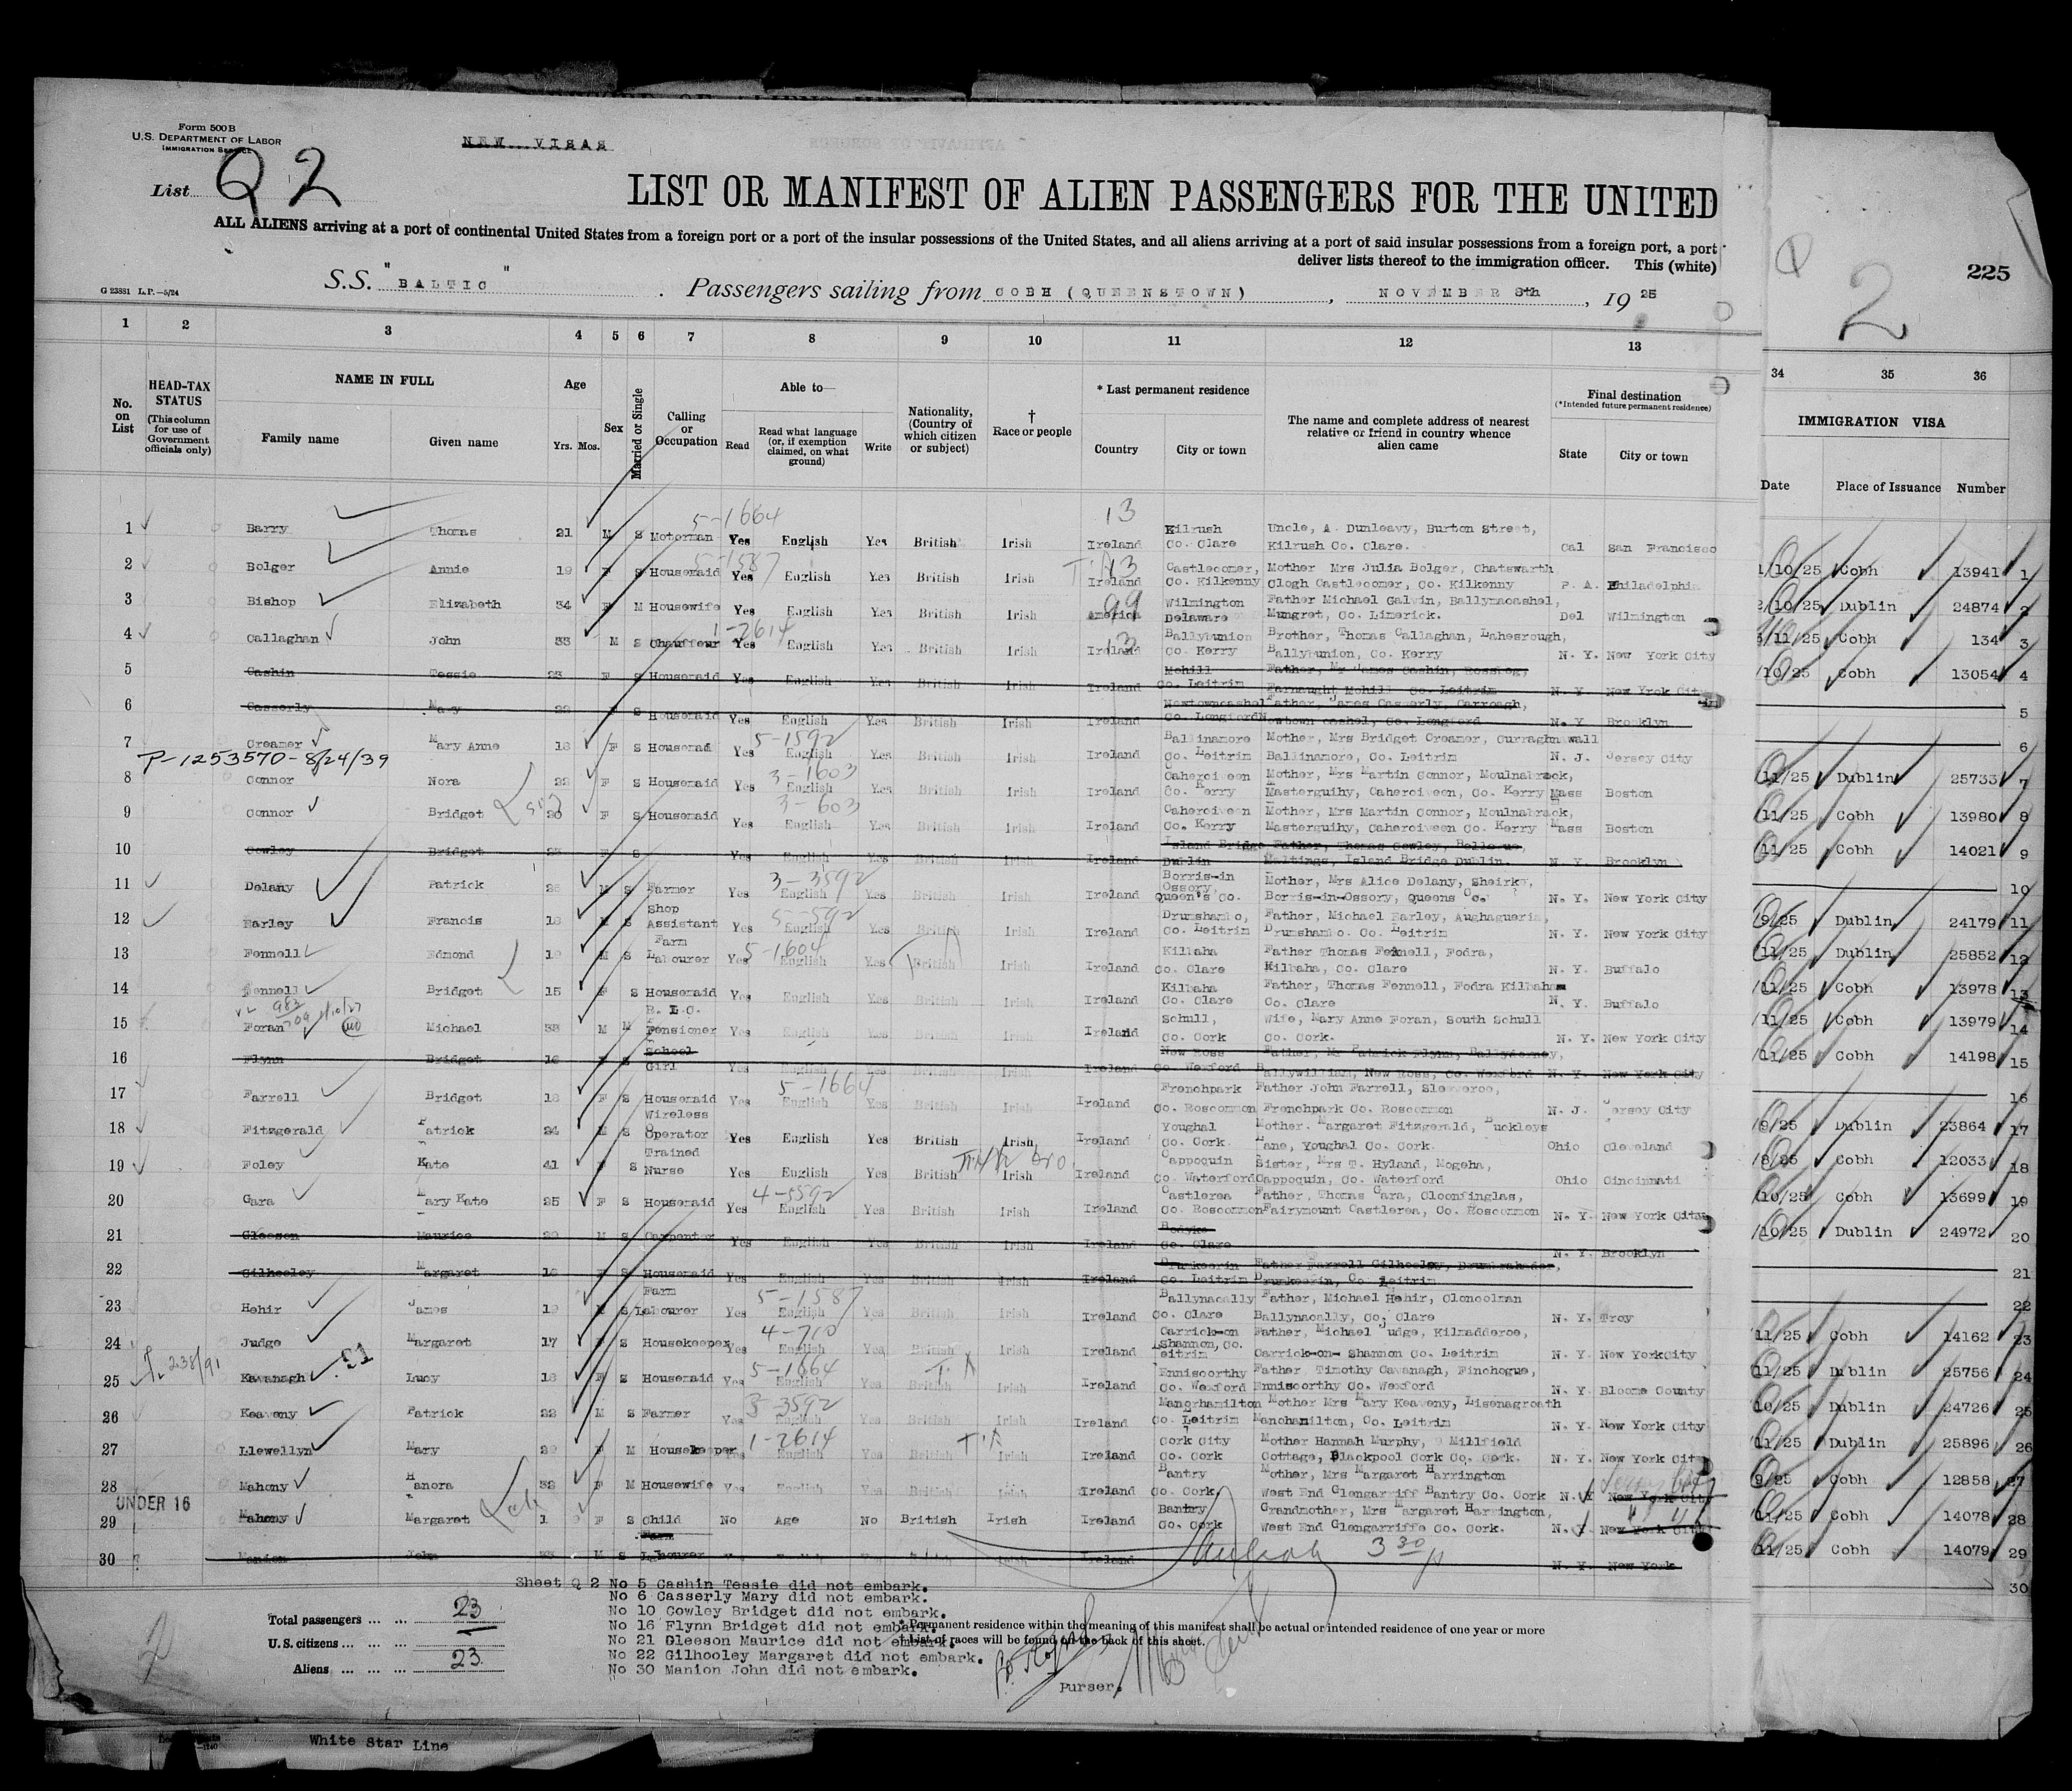 Form 500B
U.S. DEPARTMENT OF LABOR
IMMIGRATION SERVICE
NEW VISAS
List Q 2
LIST OR MANIFEST OF ALIEN PASSENGERS FOR THE UNITED
ALL ALIENS arriving at a port of continental United States from a foreign port or a port of the insular possessions of the United States, and all aliens arriving at a port of said insular possessions from a foreign port, a port
deliver lists thereof to the immigration officer. This (white)
Q 2 225
G 23881 L.P.—5/24
S.S. "BALTIC" . Passengers sailing from COBH (QUEENSTOWN) , NOVEMBER 8th , 19 25
1 2 3 4 5 6 7 8 9 10 11 12 13 34 35 36
No. on List
HEAD-TAX STATUS
(This column for use of Government officials only)
NAME IN FULL
Family name Given name
Age
Yrs. Mos.
Sex
Married or Single
Calling or Occupation
Able to—
Read Read what language (or, if exemption claimed, on what ground) Write
Nationality, (Country of which citizen or subject)
† Race or people
* Last permanent residence
Country City or town
The name and complete address of nearest relative or friend in country whence alien came
Final destination
(*Intended future permanent residence)
State City or town
IMMIGRATION VISA
Date Place of Issuance Number
5-1664 13
1 Barry Thomas 21 M S Motorman Yes English Yes British Irish Ireland Kilrush Co. Clare Uncle, A. Dunleavy, Burton Street, Kilrush Co. Clare. Cal San Francisco 1/10/25 Cobh 13941 1
5-1587 T.A 13
2 Bolger Annie 19 F S Housemaid Yes English Yes British Irish Ireland Castlecomer, Co. Kilkenny Mother Mrs Julia Bolger, Chatswarth Clogh Castlecomer, Co. Kilkenny P. A. Philadelphia 2/10/25 Dublin 24874 2
99
3 Bishop Elizabeth 34 F M Housewife Yes English Yes British Irish America Wilmington Delaware Father Michael Galvin, Ballynacashel, Mungret, Co. Limerick. Del Wilmington 3/11/25 Cobh 134 3
1-2614 13
4 Callaghan John 33 M S Chauffeur Yes English Yes British Irish Ireland Ballybunion Co. Kerry Brother, Thomas Callaghan, Lahesrough, Ballybunion, Co. Kerry N. Y. New York City /10/25 Cobh 13054 4
5 Cashin Tessie 23 F S Housemaid Yes English Yes British Irish Ireland Mohill Co. Leitrim Father, Mr James Cashin, Farnaught Mohill Co. Leitrim N. Y. New York City 5
6 Casserly Mary 22 F S Housemaid Yes English Yes British Irish Ireland Newtowncashel Co. Longford Father, James Casserly, Carrough, Newtown cashel, Co. Longford N. Y. Brooklyn 6
5-1592
7 Creamer Mary Anne 18 F S Housemaid Yes English Yes British Irish Ireland Ballinamore Co. Leitrim Mother, Mrs Bridget Creamer, Curraghnawall Ballinamore, Co. Leitrim N. J. Jersey City 11/25 Dublin 25733 7
P-1253570-8/24/39
3-1603
8 Connor Nora 22 F S Housemaid Yes English Yes British Irish Ireland Caherciveen Co. Kerry Mother, Mrs Martin Connor, Moulnabrack, Masterguihy, Caherciveen, Co. Kerry Mass Boston /11/25 Cobh 13980 8
3-603
9 Connor Bridget 20 F S Housemaid Yes English Yes British Irish Ireland Caherciveen Co. Kerry Mother, Mrs Martin Connor, Moulnabrack, Masterguihy, Caherciveen Co. Kerry Mass Boston /11/25 Cobh 14021 9
10 Cowley Bridget 25 F S Yes English Yes British Irish Ireland Island Bridge Dublin Father, Thomas Cowley, Maltings, Island Bridge Dublin. N. Y. Brooklyn 10
3-3592
11 Delany Patrick 25 M S Farmer Yes English Yes British Irish Ireland Borris-in Ossory, Queen's Co. Mother, Mrs Alice Delany, Sheirke, Borris-in-Ossory, Queens Co. N. Y. New York City /9/25 Dublin 24179 11
5-592
12 Earley Francis 18 M S Shop Assistant Yes English Yes British Irish Ireland Drumshambo, Co. Leitrim Father, Michael Earley, Aughagueria, Drumshambo. Co. Leitrim N. Y. New York City /11/25 Dublin 25852 12
5-1604
13 Fennell Edmond 19 M S Farm Labourer Yes English Yes British Irish Ireland Kilbaha Co. Clare Father Thomas Fennell, Fodra, Kilbaha, Co. Clare N. Y. Buffalo /11/25 Cobh 13978 13
14 Fennell Bridget 15 F S Housemaid Yes English Yes British Irish Ireland Kilbaha Co. Clare Father, Thomas Fennell, Fodra Kilbaha Co. Clare N. Y. Buffalo /11/25 Cobh 13979 14
15 Foran Michael 33 M M R. I. C. Pensioner Yes English Yes British Irish Ireland Schull, Co. Cork Wife, Mary Anne Foran, South Schull Co. Cork. N. Y. New York City /11/25 Cobh 14198 15
16 Flynn Bridget 16 F S School Girl Yes English Yes British Irish Ireland New Ross Co. Wexford Father, Mr Patrick Flynn, Ballywilliam, New Ross, Co. Wexford N. Y. New York City 16
5-1664
17 Farrell Bridget 18 F S Housemaid Yes English Yes British Irish Ireland Frenchpark Co. Roscommon Father John Farrell, Frenchpark Co. Roscommon N. J. Jersey City /9/25 Dublin 23864 17
18 Fitzgerald Patrick 24 M S Wireless Operator Yes English Yes British Irish Ireland Youghal Co. Cork. Mother. Margaret Fitzgerald, Buckleys Lane, Youghal Co. Cork. Ohio Cleveland /8/25 Cobh 12033 18
19 Foley Kate 41 F S Trained Nurse Yes English Yes British Irish Ireland Cappoquin Co. Waterford Sister, Mrs T. Hyland, Mogeha, Cappoquin, Co. Waterford Ohio Cincinnati /10/25 Cobh 13699 19
4-5592
20 Gara Mary Kate 25 F S Housemaid Yes English Yes British Irish Ireland Castlerea Co. Roscommon Father, Thomas Gara, Cloonfinglas, Fairymount Castlerea, Co. Roscommon N. Y. New York City /10/25 Dublin 24972 20
21 Gleeson Maurice M S Carpenter Yes English Yes British Irish Ireland Bodyke Co. Clare N. Y. Brooklyn 21
22 Gilhooley Margaret 18 F S Housemaid Yes English Yes British Irish Ireland Drumkeerin Co. Leitrim Father Farrell Gilhooley, Drumkeerin, Co. Leitrim 22
5-1587
23 Hehir James 19 M S Farm Labourer Yes English Yes British Irish Ireland Ballynacally Co. Clare Father, Michael Hehir, Cloncolman Ballynacally, Co. Clare N. Y. Troy /11/25 Cobh 14162 23
4-710
24 Judge Margaret 17 F S Housekeeper Yes English Yes British Irish Ireland Carrick-on Shannon, Co. Leitrim Father, Michael Judge, Kilmadderoe, Carrick-on- Shannon Co. Leitrim N. Y. New YorkCity /11/25 Dublin 25756 24
5-1664 T. A
25 Kavanagh Lucy 18 F S Housemaid Yes English Yes British Irish Ireland Enniscorthy Co. Wexford Father Timothy Cavanagh, Finchogue, Enniscorthy Co. Wexford N. Y. Blooms County 10/25 Dublin 24726 25
3-3592
26 Keaveny Patrick 22 M S Farmer Yes English Yes British Irish Ireland Manorhamilton Co. Leitrim Mother Mrs Mary Keaveny, Lisenagroath Manohamilton, Co. Leitrim N. Y. New York City /11/25 Dublin 25896 26
1-2614 T.A
27 Llewellyn Mary 29 F M Housekeeper Yes English Yes British Irish Ireland Cork City Co. Cork Mother Hannah Murphy, 9 Millfield Cottage, Blackpool Cork Co. Cork. N. Y. New York City 9/25 Cobh 12858 27
28 Mahony Hanora 32 F M Housewife Yes English Yes British Irish Ireland Bantry Co. Cork, Mother, Mrs Margaret Harrington West End Glengarriff Bantry Co. Cork N. Y New York City /11/25 Cobh 14078 28
UNDER 16
29 Mahony Margaret 1 9 F S Child No Age No British Irish Ireland Bantry Co. Cork Grandmother, Mrs Margaret Harrington, West End Glengarriffe Co. Cork. N. J. New York City 11/25 Cobh 14079 29
30 Manion John M S Farm Labourer Ireland N. Y. New York 30
3 30
Sheet Q 2 No 5 Cashin Tessie did not embark.
No 6 Casserly Mary did not embark.
No 10 Cowley Bridget did not embark.
No 16 Flynn Bridget did not embark.
No 21 Gleeson Maurice did not embark.
No 22 Gilhooley Margaret did not embark.
No 30 Manion John did not embark.
Total passengers ... ... 23
U.S. citizens ... ... ...
Aliens ... ... ... 23
* Permanent residence within the meaning of this manifest shall be actual or intended residence of one year or more
† List of races will be found on the back of this sheet.
Purser.
White Star Line